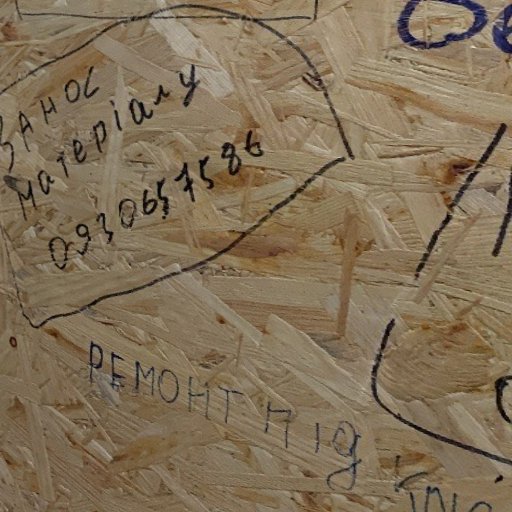 Занос
матеріалу
0930657586
РЕМОНТ під